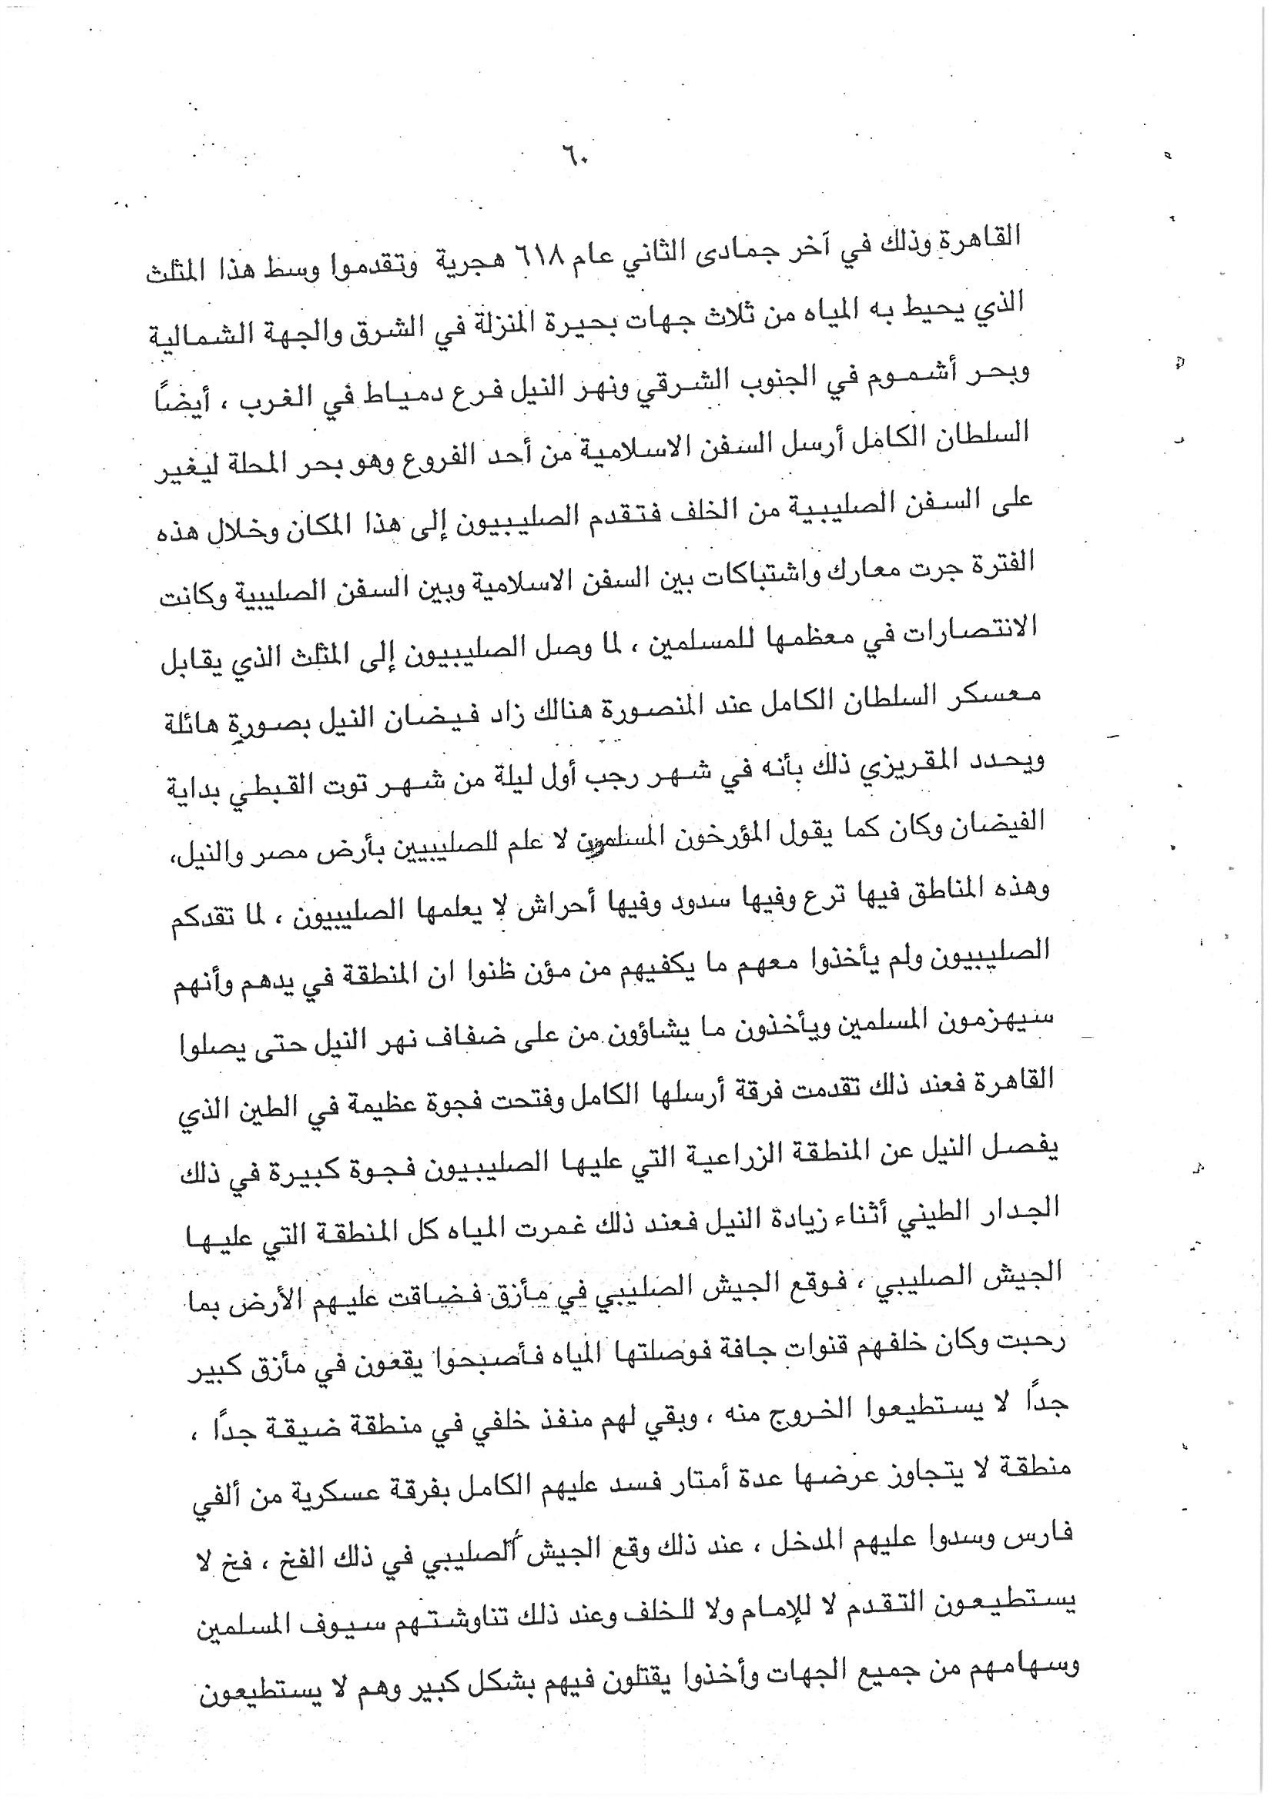 ٦٠
القاهرة وذلك في آخر جمادى الثاني عام ٦١٨ هجرية وتقدموا وسط هذا المثلث
الذي يحيط به المياه من ثلاث جهات بحيرة المنزلة في الشرق والجهة الشمالية
وبحر أشموم في الجنوب الشرقي ونهر النيل فرع دمياط في الغرب ، أيضًا
السلطان الكامل أرسل السفن الاسلامية من أحد الفروع وهو بحر المحلة ليغير
على السفن الصليبية من الخلف فتقدم الصليبيون إلى هذا المكان وخلال هذه
الفترة جرت معارك واشتباكات بين السفن الاسلامية وبين السفن الصليبية وكانت
الانتصارات في معظمها للمسلمين ، لما وصل الصليبيون إلى المثلث الذي يقابل
معسكر السلطان الكامل عند المنصورة هنالك زاد فيضان النيل بصورة هائلة
ويحدد المقريزي ذلك بأنه في شهر رجب أول ليلة من شهر توت القبطي بداية
الفيضان وكان كما يقول المؤرخون المسلمون لا علم للصليبيين بأرض مصر والنيل،
وهذه المناطق فيها ترع وفيها سدود وفيها أحراش لا يعلمها الصليبيون ، لما تقدكم
الصليبيون ولم يأخذوا معهم ما يكفيهم من مؤن ظنوا ان المنطقة في يدهم وأنهم
سيهزمون المسلمين ويأخذون ما يشاؤون من على ضفاف نهر النيل حتى يصلوا
القاهرة فعند ذلك تقدمت فرقة أرسلها الكامل وفتحت فجوة عظيمة في الطين الذي
يفصل النيل عن المنطقة الزراعية التي عليها الصليبيون فجوة كبيرة في ذلك
الجدار الطيني أثناء زيادة النيل فعند ذلك غمرت المياه كل المنطقة التي عليها
الجيش الصليبي ، فوقع الجيش الصليبي في مأزق فضاقت عليهم الأرض بما
رحبت وكان خلفهم قنوات جافة فوصلتها المياه فأصبحوا يقعون في مأزق كبير
جدًا لا يستطيعوا الخروج منه ، وبقي لهم منفذ خلفي في منطقة ضيقة جدًا ،
منطقة لا يتجاوز عرضها عدة أمتار فسد عليهم الكامل بفرقة عسكرية من ألفي
فارس وسدوا عليهم المدخل ، عند ذلك وقع الجيش الصليبي في ذلك الفخ ، فخ لا
يستطيعون التقدم لا للإمام ولا للخلف وعند ذلك تناوشتهم سيوف المسلمين
وسهامهم من جميع الجهات وأخذوا يقتلون فيهم بشكل كبير وهم لا يستطيعون